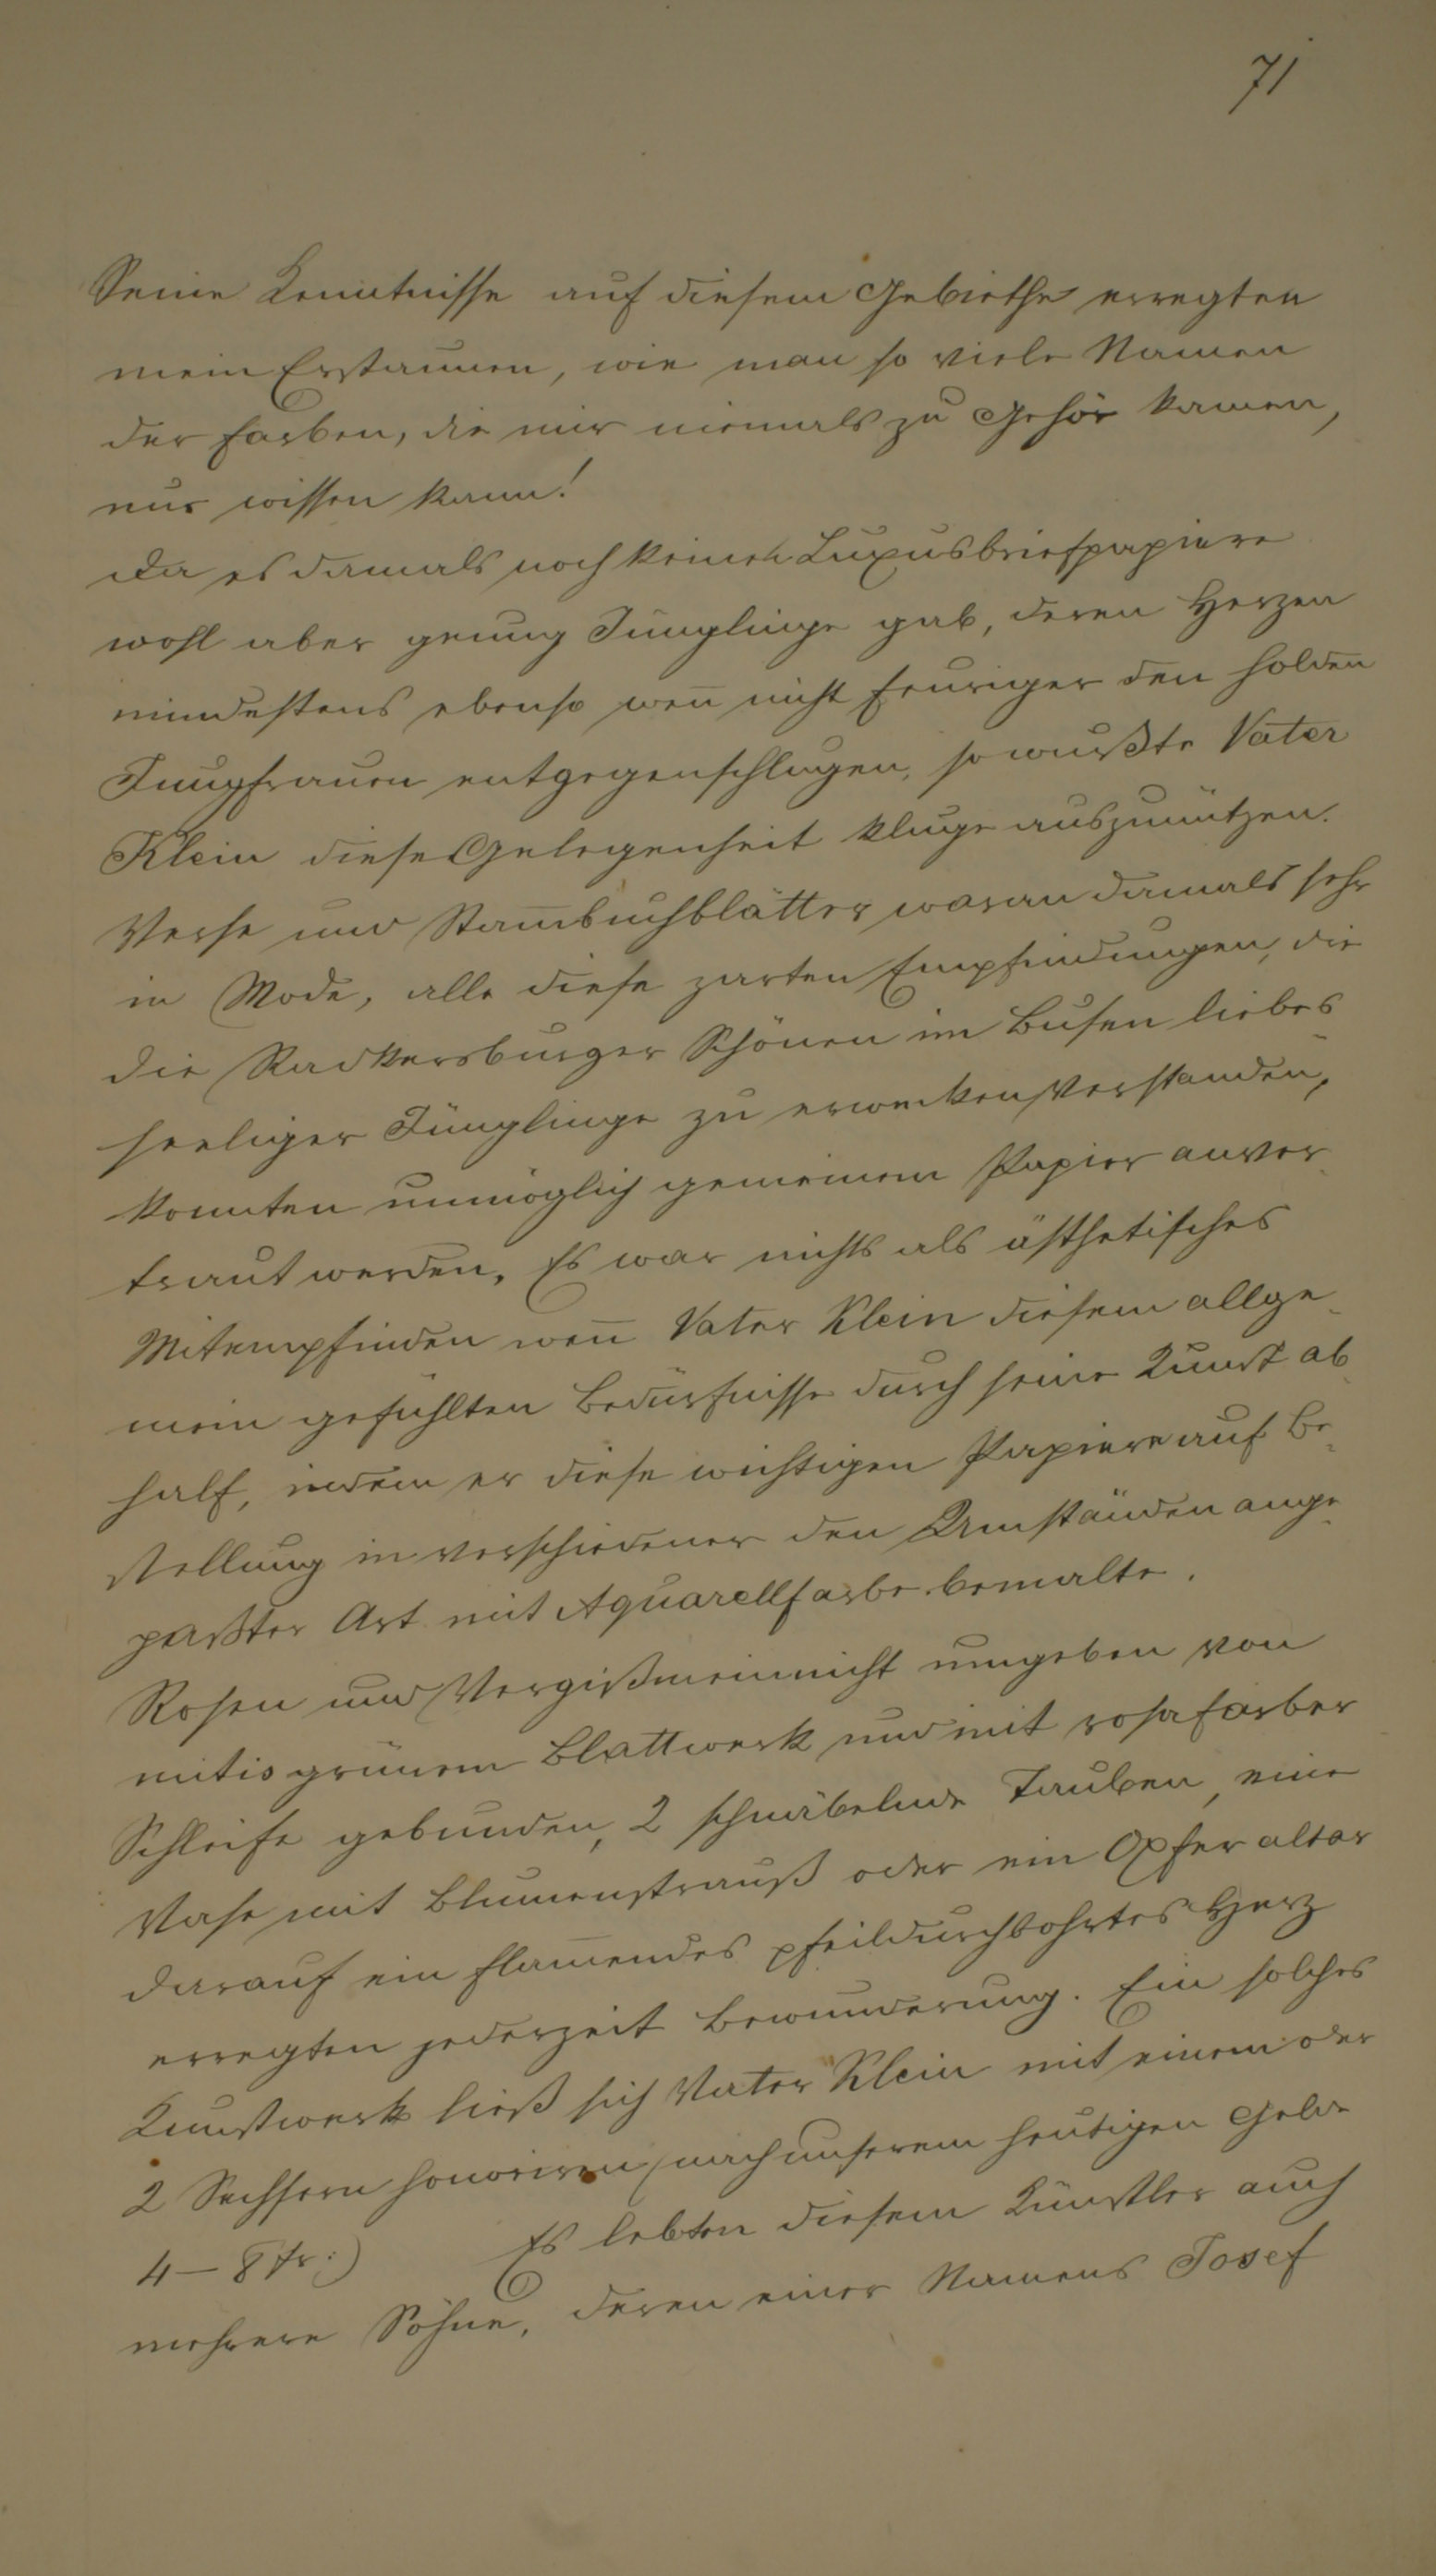 71
Seine Kenntnisse auf diesem Gebiethe erregten
mein Erstaunen, wie man so viele Namen
der Farben, die mir niemals zu Gehör kamen,
nur wissen kann!
Da es damals noch keine Luxusbriefpapiere
wohl aber genug Jünglinge gab, deren Herzen
mindestens ebenso wen̄ nicht feuriger den holden
Jungfrauen entgegenschlugen, so wußte Vater
Klein diese Gelegenheit kluge auszunützen.
Verse und Stam̄buchblätter waren damals sehr
in Mode, alle diese zarten Empfindungen, die
die Radkersburger Schönen im Busen liebes
seeliger Jünglinge zu erwecken verstanden,
konnten unmöglich gemeinem Papier anver-
traut werden. Es war nichts als ästhetisches
Mitempfinden wen̄ Vater Klein diesem allge-
mein gefühlten Bedürfnisse durch seine Kunst ab-
half, indem er diese wichtigen Papiere auf Be-
stellung in verschiedener den Umständen ange-
paßter Art mit Aquarellfarbe bemalte.
Rosen und Vergißmeinnicht umgeben von
mitisgrünem Blattwerk und mit rosafarber
Schleife gebunden, 2 schnäbelnde Tauben, eine
Vase mit Blumenstrauß oder ein Opferaltar
darauf ein flam̄endes pfeildurchbohrtes Herz
erregten jederzeit Bewunderung. Ein solches
Kunstwerk ließ sich Vater Klein mit einem oder
2 Sechsern honoriren (nach unserem heutigen Gelde
4 – 8 fr:) Es lebten diesem Künstler auch
mehrere Söhne, deren einer Namens Josef